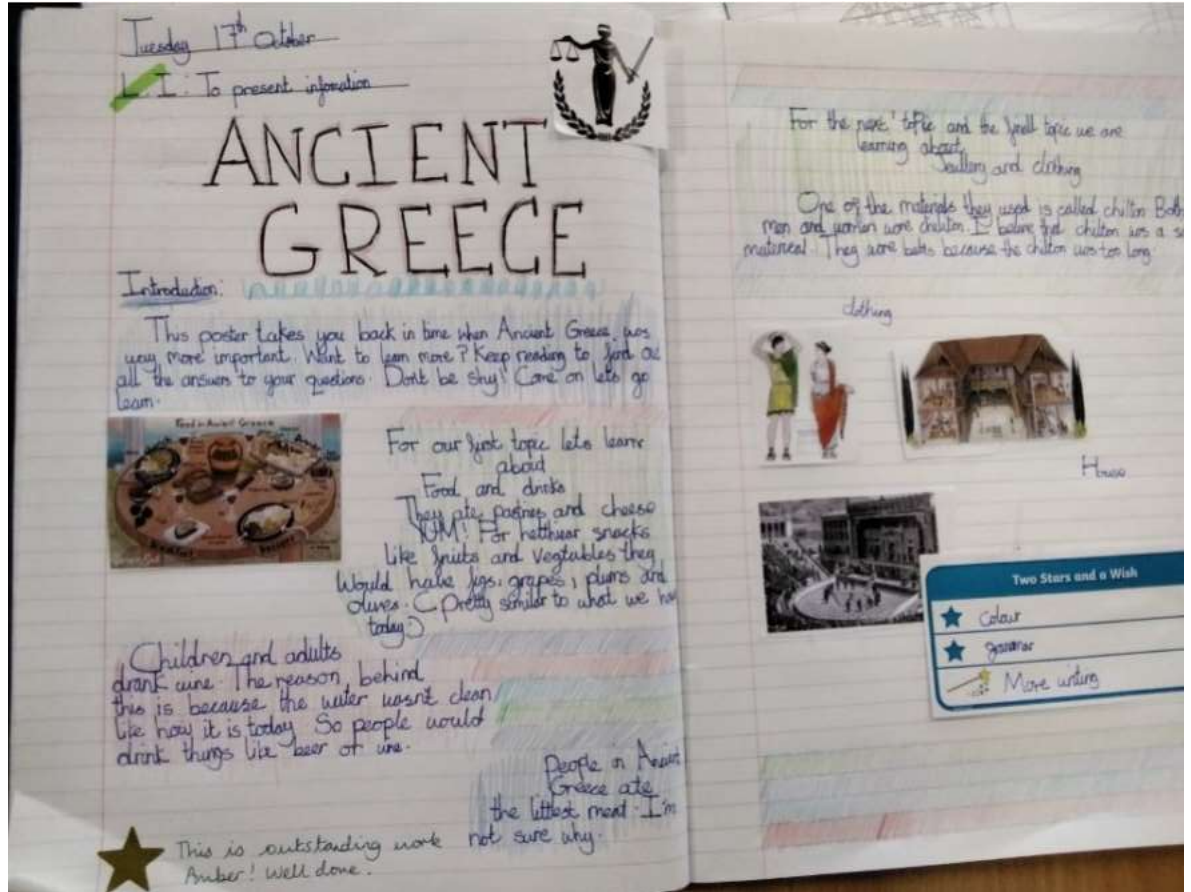 Tuesday 17th October
L.I: To present infomation
ANCIENT
GREECE
Introduction:
This poster takes you back in time when Ancient Greece was
very more important. Want to learn more? Keep reading to find
all the answers to your questions. Dont be shy! Come on lets go
learn.
Food in Ancient Greece
For our first topic lets learn
about
Food and drinks
They ate pastries and cheese
YUM! For helthiear snacks
like fruits and vegtables they
Would have figs, grapes, plums and
olives. (Pretty similar to what we
today)
Children and adults
drank wine. The reason behind
this is because the water wasnt clean
like how it is today. So people would
drink things like beer or wine.
People in
Greece ate
the littest meat. I'm
not sure why.
This is outstanding work
Amber! Well done.
For the next topic and the topic we are
learning about
and clothing
One of the materials they used is called chilton Both
men and women wore I believe that chilton was a
They wore belts because the chilton was too long.
clothing
House
Two Stars and a Wish
Colour
grammar
More writing